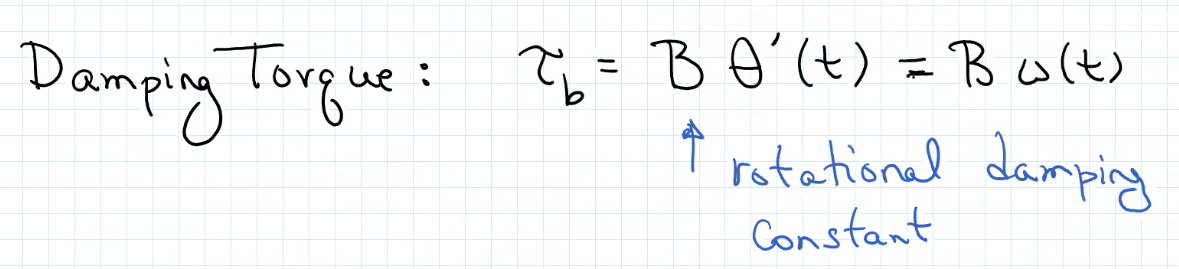 Damping Torque: τ_b = B θ'(t) = B ω(t)
↑ rotational damping
constant